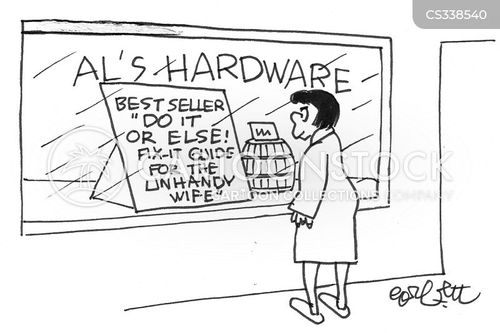 CS338540
AL'S HARDWARE
BEST SELLER
"DO IT
OR ELSE!
FIX-IT GUIDE
FOR THE
UNHANDY
WIFE"
CARTOONSTOCK
CARTOON COLLECTIONS COMPANY